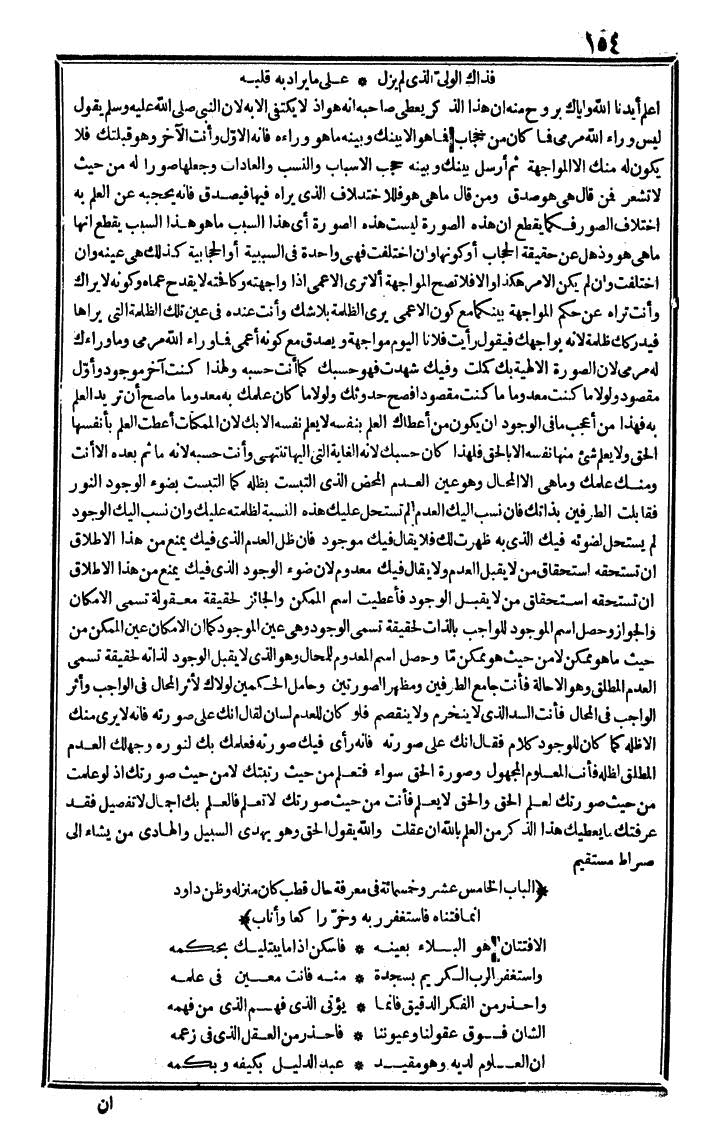 ١٥٤
فذاك الولي الذي لم يزل * على ما يراد به قلبه
اعلم أيدنا الله واياك بروح منه ان هذا الذكر يعطى صاحبه انه هو اذ لا يكتفى الا به لان النبي صلى الله عليه وسلم يقول
ليس وراء الله مرمى فما كان من حجاب فما هو الا بينك وبينه ما هو وراءه فانه الاول وأنت الآخر وهو قبلتك فلا
يكون له منك الا المواجهة ثم أرسل بينك وبينه حجب الاسباب والنسب والعادات وجعلها صورا له من حيث
لا تشعر فمن قال هي هو صدق ومن قال ما هي هو فللاختلاف الذي يراه فيها فيصدق فانه يحجبه عن العلم به
اختلاف الصور فكما يقطع ان هذه الصورة ليست هذه الصورة أي هذا السبب ما هو هذا السبب يقطع انها
ما هي هو وذهل عن حقيقة الحجاب أو كونها وان اختلفت فهي واحدة في السببية أو الحجابية كذلك هي عينه وان
اختلفت وان لم يكن الامر هكذا والا فلا تصح المواجهة ألا ترى الاعمى اذا واجهته وكافحته لا يقدح عماه وكونه لا يراك
وأنت تراه عن حكم المواجهة بينكما مع كون الاعمى يرى الظلمة بلا شك وأنت عنده في عين تلك الظلمة التي يراها
فيدركك ظلمة لانه يواجهك فيقول رأيت فلانا اليوم مواجهة ويصدق مع كونه أعمى فما وراء الله مرمى وما وراءك
له مرمى لان الصورة الالهية بك كملت وفيك شهدت فهو حسبك كما أنت حسبه ولهذا كنت آخر موجود وأول
مقصود ولولا ما كنت معدوما ما كنت مقصودا فصح حدوثك ولولا ما كان علمك به معدوما ما صح أن تريد العلم
به فهذا من أعجب ما في الوجود ان يكون من أعطاك العلم بنفسه لا يعلم نفسه الا بك لان الممكنات أعطت العلم بأنفسها
الحق ولا يعلم شئ منها نفسه الا بالحق فلهذا كان حسبك لانه الغاية التي اليها تنتهي وأنت حسبه لانه ما ثم بعده الا أنت
ومنك علمك وما هي الا المحال وهو عين العدم المحض الذي التبست بظله كما التبست بضوء الوجود النور
فقابلت الطرفين بذاتك فان نسب اليك العدم لم تستحل عليك هذه النسبة لظلمته عليك وان نسب اليك الوجود
لم يستحل لضوئه فيك الذي به ظهرت لك فلا يقال فيك موجود فان ظل العدم الذي فيك يمنع من هذا الاطلاق
ان تستحقه استحقاق من لا يقبل العدم ولا يقال فيك معدوم لان ضوء الوجود الذي فيك يمنع من هذا الاطلاق
ان تستحقه استحقاق من لا يقبل الوجود فأعطيت اسم الممكن والجائز لحقيقة معقولة تسمى الامكان
والجواز وحصل اسم الموجود للواجب بالذات لحقيقة تسمى الوجود وهي عين الموجود كما ان الامكان عين الممكن من
حيث ما هو ممكن لا من حيث هو ممكن تما وحصل اسم المعدوم للمحال وهو الذي لا يقبل الوجود لذاته لحقيقة تسمى
العدم المطلق وهو الاحالة فأنت جامع الطرفين ومظهر الصورتين وحامل الحكمين لولاك لأثر المحال في الواجب وأثر
الواجب في المحال فأنت السد الذي لا ينخرم ولا ينقصم فلو كان للعدم لسان لقال انك على صورته فانه لا يرى منك
الا ظله كما كان للوجود كلام فقال انك على صورته فانه رأى فيك صورته فعلمك بك لنوره وجهلك العدم
المطلق لظله فأنت المعلوم المجهول وصورة الحق سواء فتعلم من حيث رتبتك لا من حيث صورتك اذ لو علمت
من حيث صورتك لعلم الحق والحق لا يعلم فأنت من حيث صورتك لا تعلم فالعلم بك اجمال لا تفصيل فقد
عرفتك ما يعطيك هذا الذكر من العلم بالله ان عقلت والله يقول الحق وهو يهدى السبيل والهادى من يشاء الى
صراط مستقيم
﴿الباب الخامس عشر وخمسمائة في معرفة حال قطب كان منزله وظن داود
انما فتناه فاستغفر ربه وخر را كعا وأناب﴾
الافتتان هو البلاء بعينه * فاسكن اذا ما يبتليك بحكمه
واستغفر الرب الكريم بسجدة * منه فانت معين في علمه
واحذر من الفكر الدقيق فانما * يؤتى الذي فهم الذي من فهمه
الشان فوق عقولنا وعيوننا * فاحذر من العقل الذي في زعمه
ان العلوم لديه وهو مقيد * عبد الدليل بكيفه وبكمه
ان